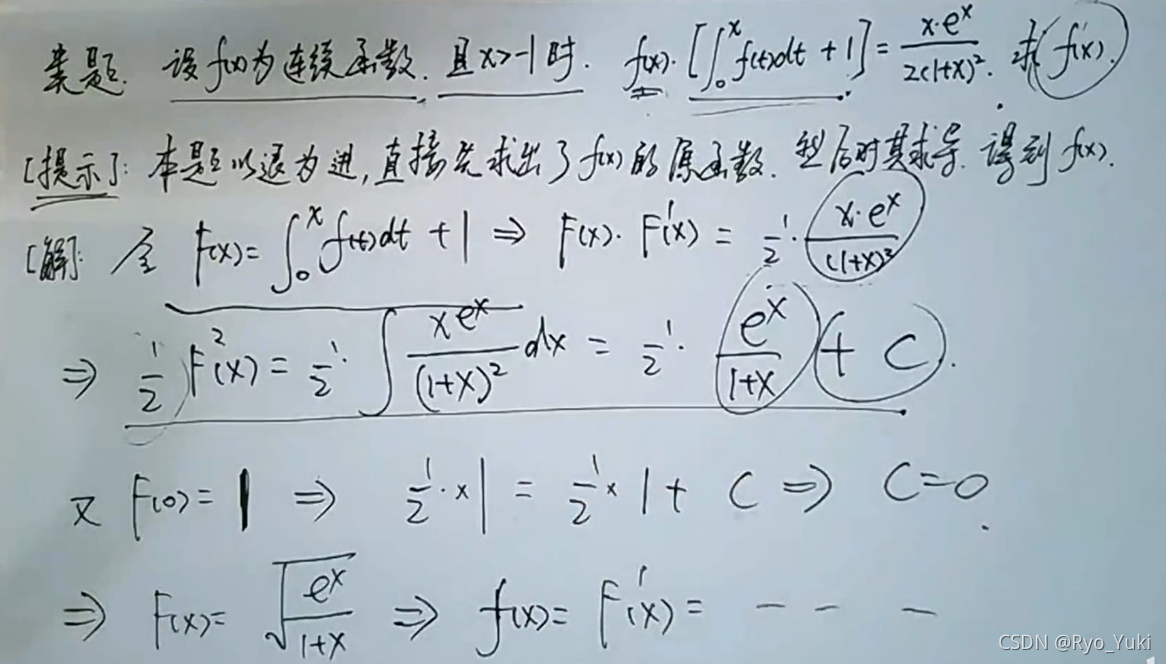 类题. 设 f(x) 为连续函数. 且 x>-1 时. f(x)·[∫₀ˣ f(t)dt + 1] = x·eˣ / 2(1+x)². 求 f(x).
[提示]: 本题以退为进, 直接先求出了 f(x) 的原函数. 然后对其求导. 得到 f(x).
[解]: 令 F(x) = ∫₀ˣ f(t)dt + 1 ⇒ F(x)·F'(x) = 1/2 · x·eˣ / (1+x)²
⇒ 1/2 F²(x) = 1/2 · ∫ xeˣ / (1+x)² dx = 1/2 · eˣ / 1+x + C.
又 F(0) = 1 ⇒ 1/2 · x 1 = 1/2 x 1 + C ⇒ C=0.
⇒ F(x) = √(eˣ / 1+x) ⇒ f(x) = F'(x) = - - -
CSDN @Ryo_Yuki